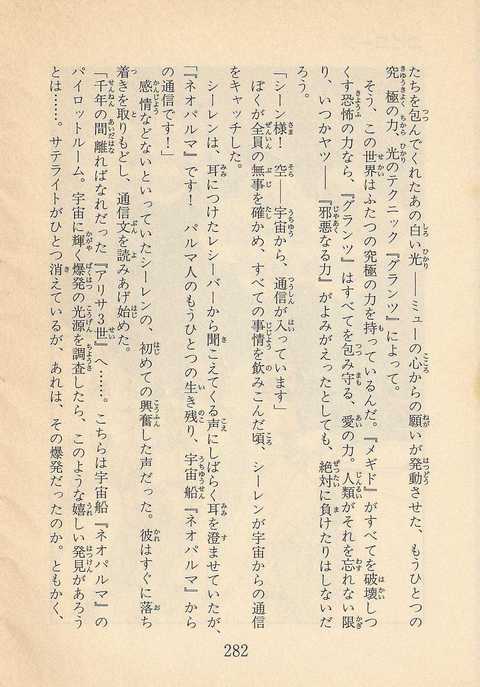 たちを包んでくれたあの白い光――ミューの心からの願いが発動させた、もうひとつの
究極の力、光のテクニック『グランツ』によって。
そう、この世界はふたつの究極の力を持っているんだ。『メギド』がすべてを破壊しつ
くす恐怖の力なら、『グランツ』はすべてを包み守る、愛の力。人類がそれを忘れない限
り、いつかヤツ――『邪悪なる力』がよみがえったとしても、絶対に負けたりはしないだ
ろう。
「シーン様！　空――宇宙から、通信が入っています」
ぼくが全員の無事を確かめ、すべての事情を飲みこんだ頃、シーレンが宇宙からの通信
をキャッチした。
シーレンは、耳につけたレシーバーから聞こえてくる声にしばらく耳を澄ませていたが、
「『ネオパルマ』です！　パルマ人のもうひとつの生き残り、宇宙船『ネオパルマ』から
の通信です！」
感情などないといっていたシーレンの、初めての興奮した声だった。彼はすぐに落ち
着きを取りもどし、通信文を読みあげ始めた。
「千年の間離ればなれだった『アリサ３世』へ……。こちらは宇宙船『ネオパルマ』の
パイロットルーム。宇宙に輝く爆発の光源を調査したら、このような嬉しい発見があろう
とは……。サテライトがひとつ消えているが、あれは、その爆発だったのか。ともかく、
282